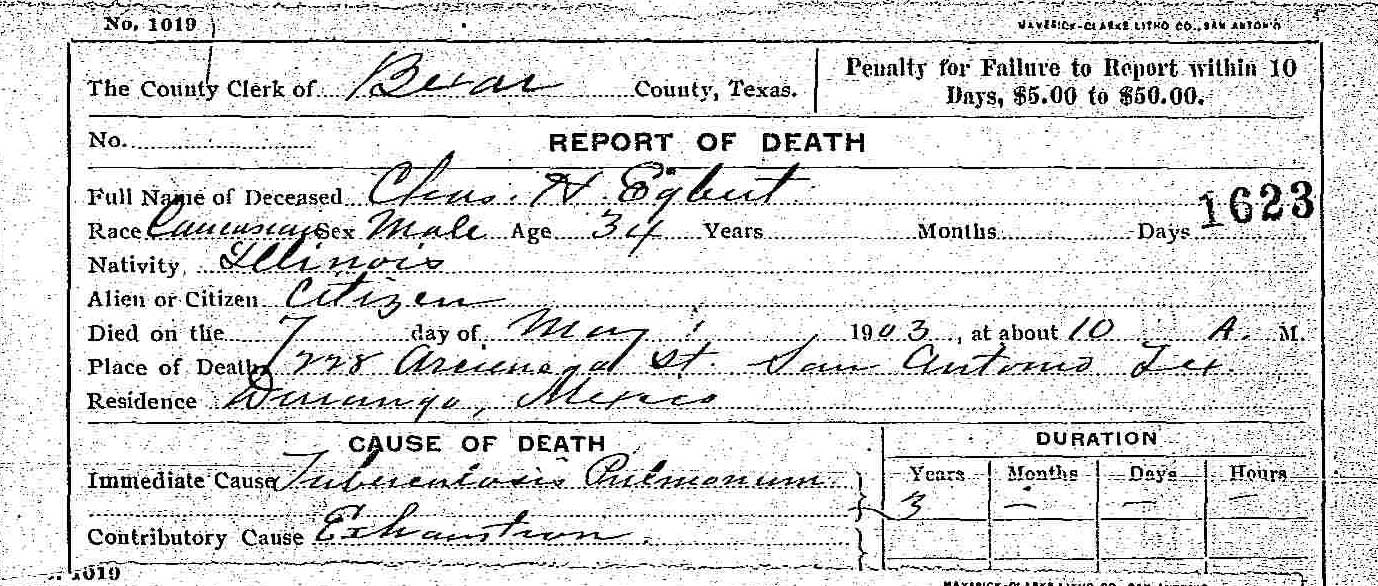 No. 1019 MAVERICK-CLARKE LITHO CO., SAN ANTONIO
The County Clerk of Bexar County, Texas.
Penalty for Failure to Report within 10
Days, $5.00 to $50.00.
No. REPORT OF DEATH
Full Name of Deceased Chas. H Egbert
1623
Race Caucasian Sex Male Age 34 Years Months Days
Nativity Illinois
Alien or Citizen Citizen
Died on the 7 day of May 1903, at about 10 A. M.
Place of Death Arcienega St. San Antonio Tex.
Residence Durango, Mexico
CAUSE OF DEATH DURATION
Years Months Days Hours
Immediate Cause Tuberculosis Pulmonum 3 — — —
Contributory Cause Exhaustion.
1019 MAVERICK-CLARKE LITHO CO., SAN ANTONIO